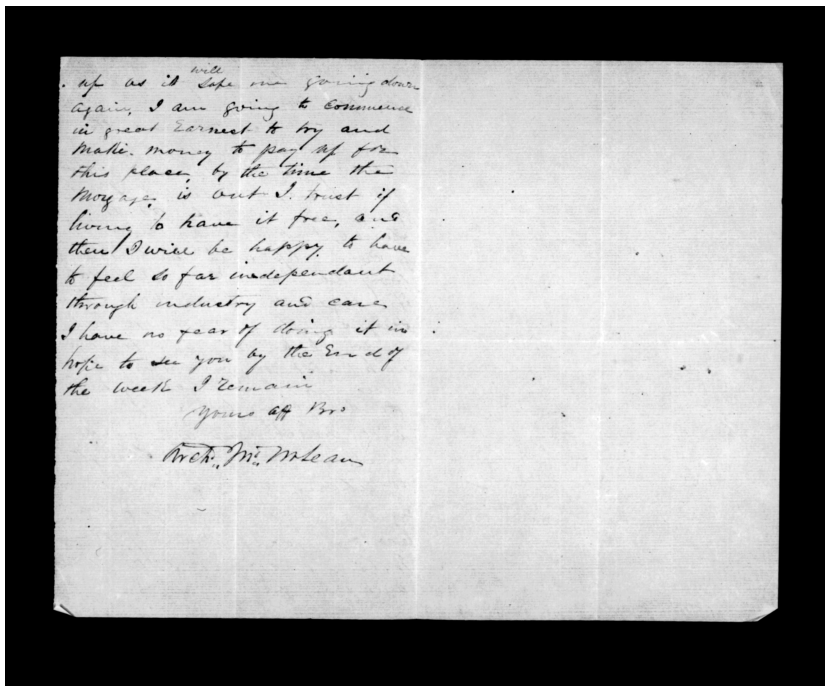 up as it will safe me going down
again, I am going to commence
in great Earnest to try and
make money to pay up for
this place, by the time the
Morgage is out I trust if
living to have it free, and
then I will be happy to have
to feel so far independant
through industry and care
I have no fear of doing it in
hope to see you by the End of
the week I remain
Yours aff Bro
Archd. McLean